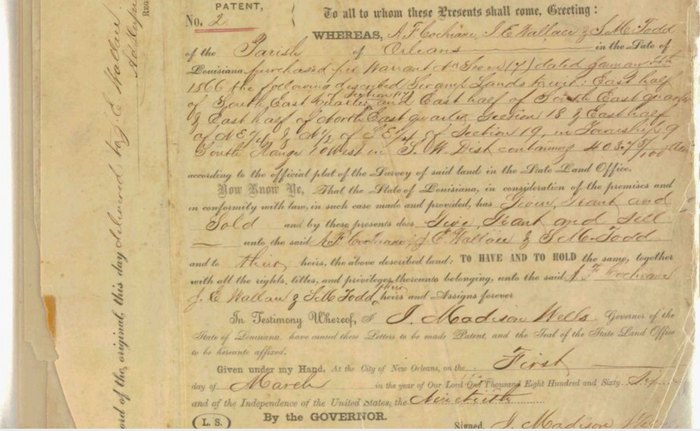 PATENT,
No. 2
To all to whom these Presents shall come, Greeting:
WHEREAS, A F Cochran, J. E. Wallace & S. M. Todd
of the Parish of Orleans in the State of
Louisiana, purchased per Warrant No Seven (7) dated January
1866 the following described Swamp Lands to wit: East half
of South East quarter and East half of South East quarter
& East half of North East quarter Section 18 & East half
of N E 1/4 & N 1/2 of S E 1/4 of Section 19, in Township 9
South Range 10 West in S. W. Dist containing
according to the official plat of the Survey of said land in the State Land Office.
Now Know Ye, That the State of Louisiana, in consideration of the premises and
in conformity with law, in such case made and provided, has Given, Grant and
Sold and by these presents does Give Grant and Sell
unto the said A. F. Cochran, J E Wallace & S. M. Todd
and to their heirs, the above described land: TO HAVE AND TO HOLD the same, together
with all the rights, titles, and privileges thereunto belonging, unto the said A F Cochran
J. E Wallace & S. M. Todd their heirs and Assigns forever
In Testimony Whereof, I J. Madison Wells Governor of the
State of Louisiana, have caused these Letters to be made Patent, and the Seal of the State Land Office
to be hereunto affixed.
Given under my Hand, At the City of New Orleans, on the First
day of March in the year of Our Lord One Thousand Eight Hundred and Sixty Six
and of the Independence of the United States, the Ninetieth
L. S.
By the GOVERNOR.
Signed J. Madison
ord of the, original, this day delivered to J. E Wallace